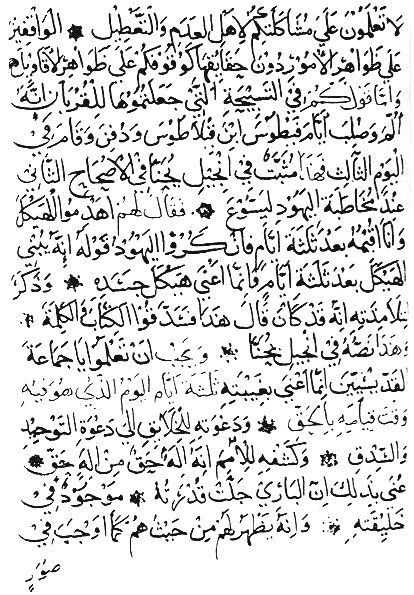 لا تعلمون على مشاكلتكم لاهل العدم والتعطيل * الواقفين
على ظواهر الامور دون حقايقها كوقوفكم على ظواهر
واما قولكم في التسبيحة التي جعلتموها للقربان انه
الم وصلب ايام فيطوس ابن فيلاطوس ودفن وقام في
اليوم الثالث فهذا مثبت في انجيل يحنا في الاصحاح الثاني
عند مخاطبة اليهود ليسوع * فقال لهم اهدموا الهيكل
وانا اقيمه بعد ثلثة ايام فانكروا اليهود قوله انه يبني
الهيكل بعد ثلثة ايام وانما اعني هيكل جسده * وذكر
تلامذته انه قد كان قال هذا فتصدقوا الكتاب والكلمة *
هذا نصه في انجيل يحنا * ويجب ان تعلموا يا جماعة
القديسين انما اعني بغيبته ثلثة ايام اليوم الذي هو فيه
وقت قيامه بالحق * ودعوته للخلايق الى دعوة التوحيد
والصدق * وكشفه للامم انه اله حق من اله حق *
عني بذلك ان الباري جلت قدرته * موجود في
خليقته * وانه يظهر لهم من حيث هم كما اوجب في